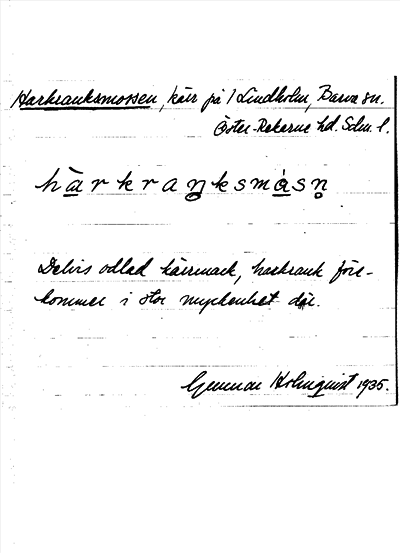 Harkranksmossen, kärr på 1 Lindholm, Barva sn.
Öster-Rekarne hd. Sdm. l.
hàrkraŋksmásn̥
Delvis odlad kärrmark, harkrank före-
kommer i stor myckenhet där.
Gunnar Holmquist 1935.